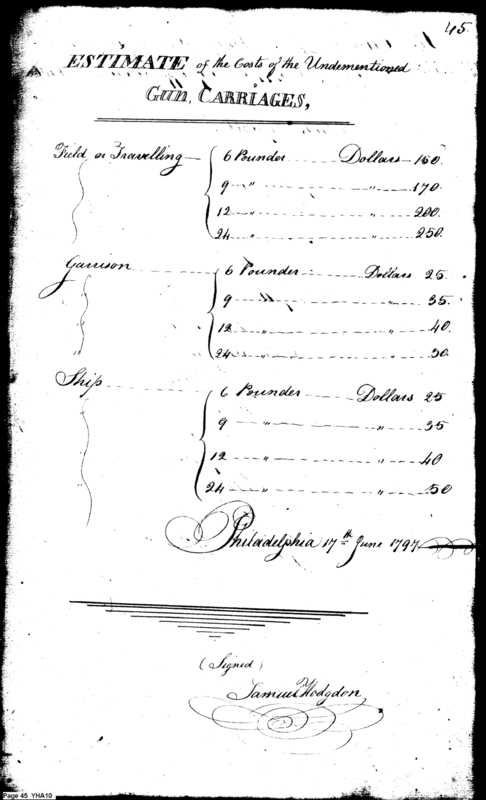 45
ESTIMATE of the Costs of the Undementioned
GUN, CARRIAGES,
Field or Travelling { 6 Pounder Dollars 150.
9 " " 170.
12 " " 200.
24 " " 250.
Garrison { 6 Pounder Dollars 25.
9 " " 35.
12 " " 40.
24 " " 50.
Ship { 6 Pounder Dollars 25
9 " " 35
12 " " 40
24 " " 50
Philadelphia 17th June 1797.
(Signed)
Samuel Hodgdon
Page 45 YHA10